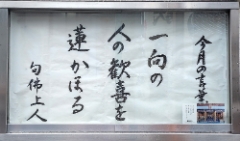 今月の言葉
一向の
人の歓喜を
蓮かほる
句佛上人